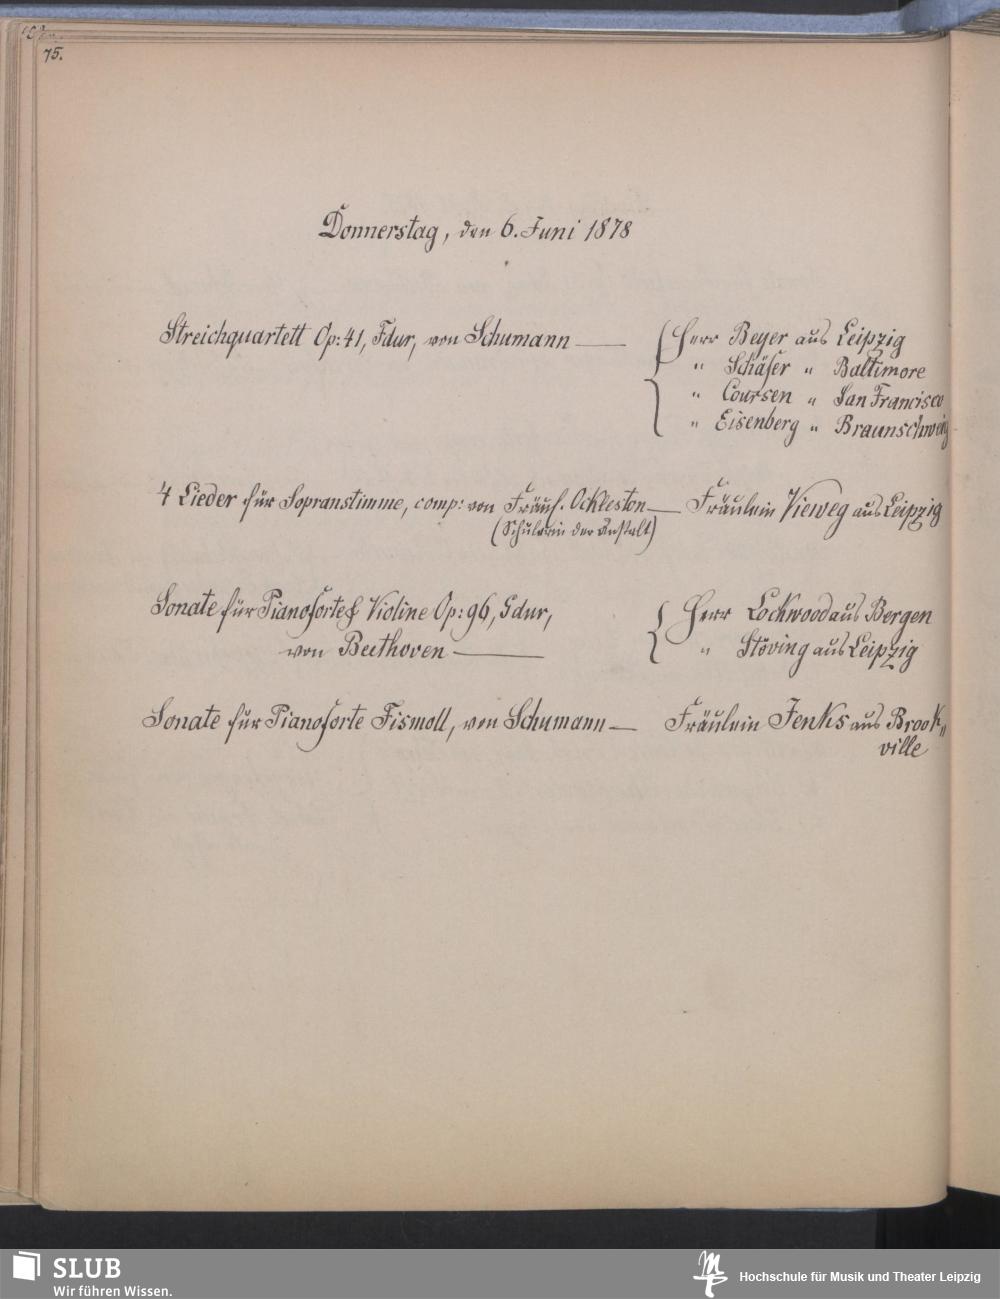 75.
Donnerstag, den 6. Juni 1878
Streichquartett Op: 41, Fdur, von Schumann — Herr Beyer aus Leipzig
" Schäfer " Baltimore
" Coursen " San Francisco
" Eisenberg " Braunschweig
4 Lieder für Sopranstimme, comp: von Fräul. Ockleston — Fräulein Vieweg aus Leipzig
(Schülerin der Anstalt)
Sonate für Pianoforte & Violine Op: 96, Gdur, Herr Lockwood aus Bergen
von Beethoven — " Stöving aus Leipzig
Sonate für Pianoforte Fismoll, von Schumann — Fräulein Jenks aus Brook„
ville
SLUB
Wir führen Wissen.
Hochschule für Musik und Theater Leipzig